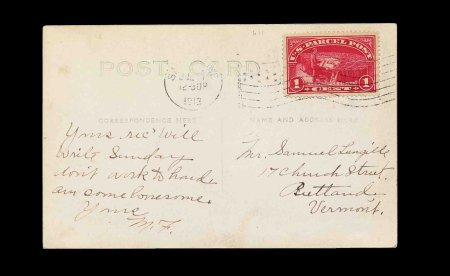 U.S. PARCEL POST
1 CENT 1
POST CARD
12-30P
1913
CORRESPONDENCE HERE
NAME AND ADDRESS HERE
Yours rec'd will
write Sunday
don't work to hard
am some lonesome
Yours
M.F.
Mr. Samuel
17 Church Street.
Rutland
Vermont.